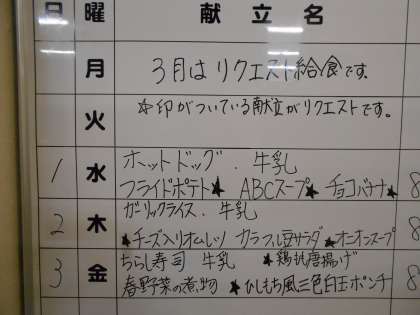 日 曜 献立名
月 3月は リクエスト給食です。
火 ☆印がついている献立がリクエストです。
ホットドッグ . 牛乳
1 水
フライドポテト★ ABCスープ★ チョコバナナ★ 8
ガーリックライス . 牛乳
2 木
★チーズ入りオムレツ カラフル豆サラダ ★オニオンスープ 8
ちらし寿司 牛乳 ★鶏もも唐揚げ
3 金
春野菜の煮物 ★ひしもち風三色白玉ポンチ 8